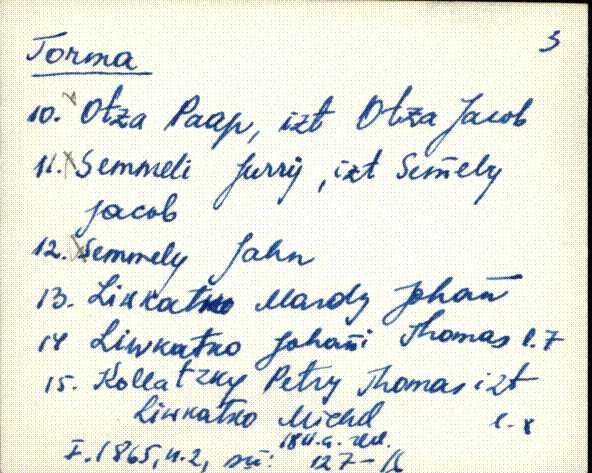 3
Torma
10. Otza Paap, izt Otza Jacob
11. Semmeli Jurry, izt Sem̄ely
Jacob
12. Semmely Jahn
13. Liwkatko Mardy Johan̄
14 Liwkatko Johan̄i Thomas l. 7
15. Kollatzky Petry Thomas izt
Liwkatko Michel l. 8
F. 1865, n. 2, 1811. a. rev.
127-16